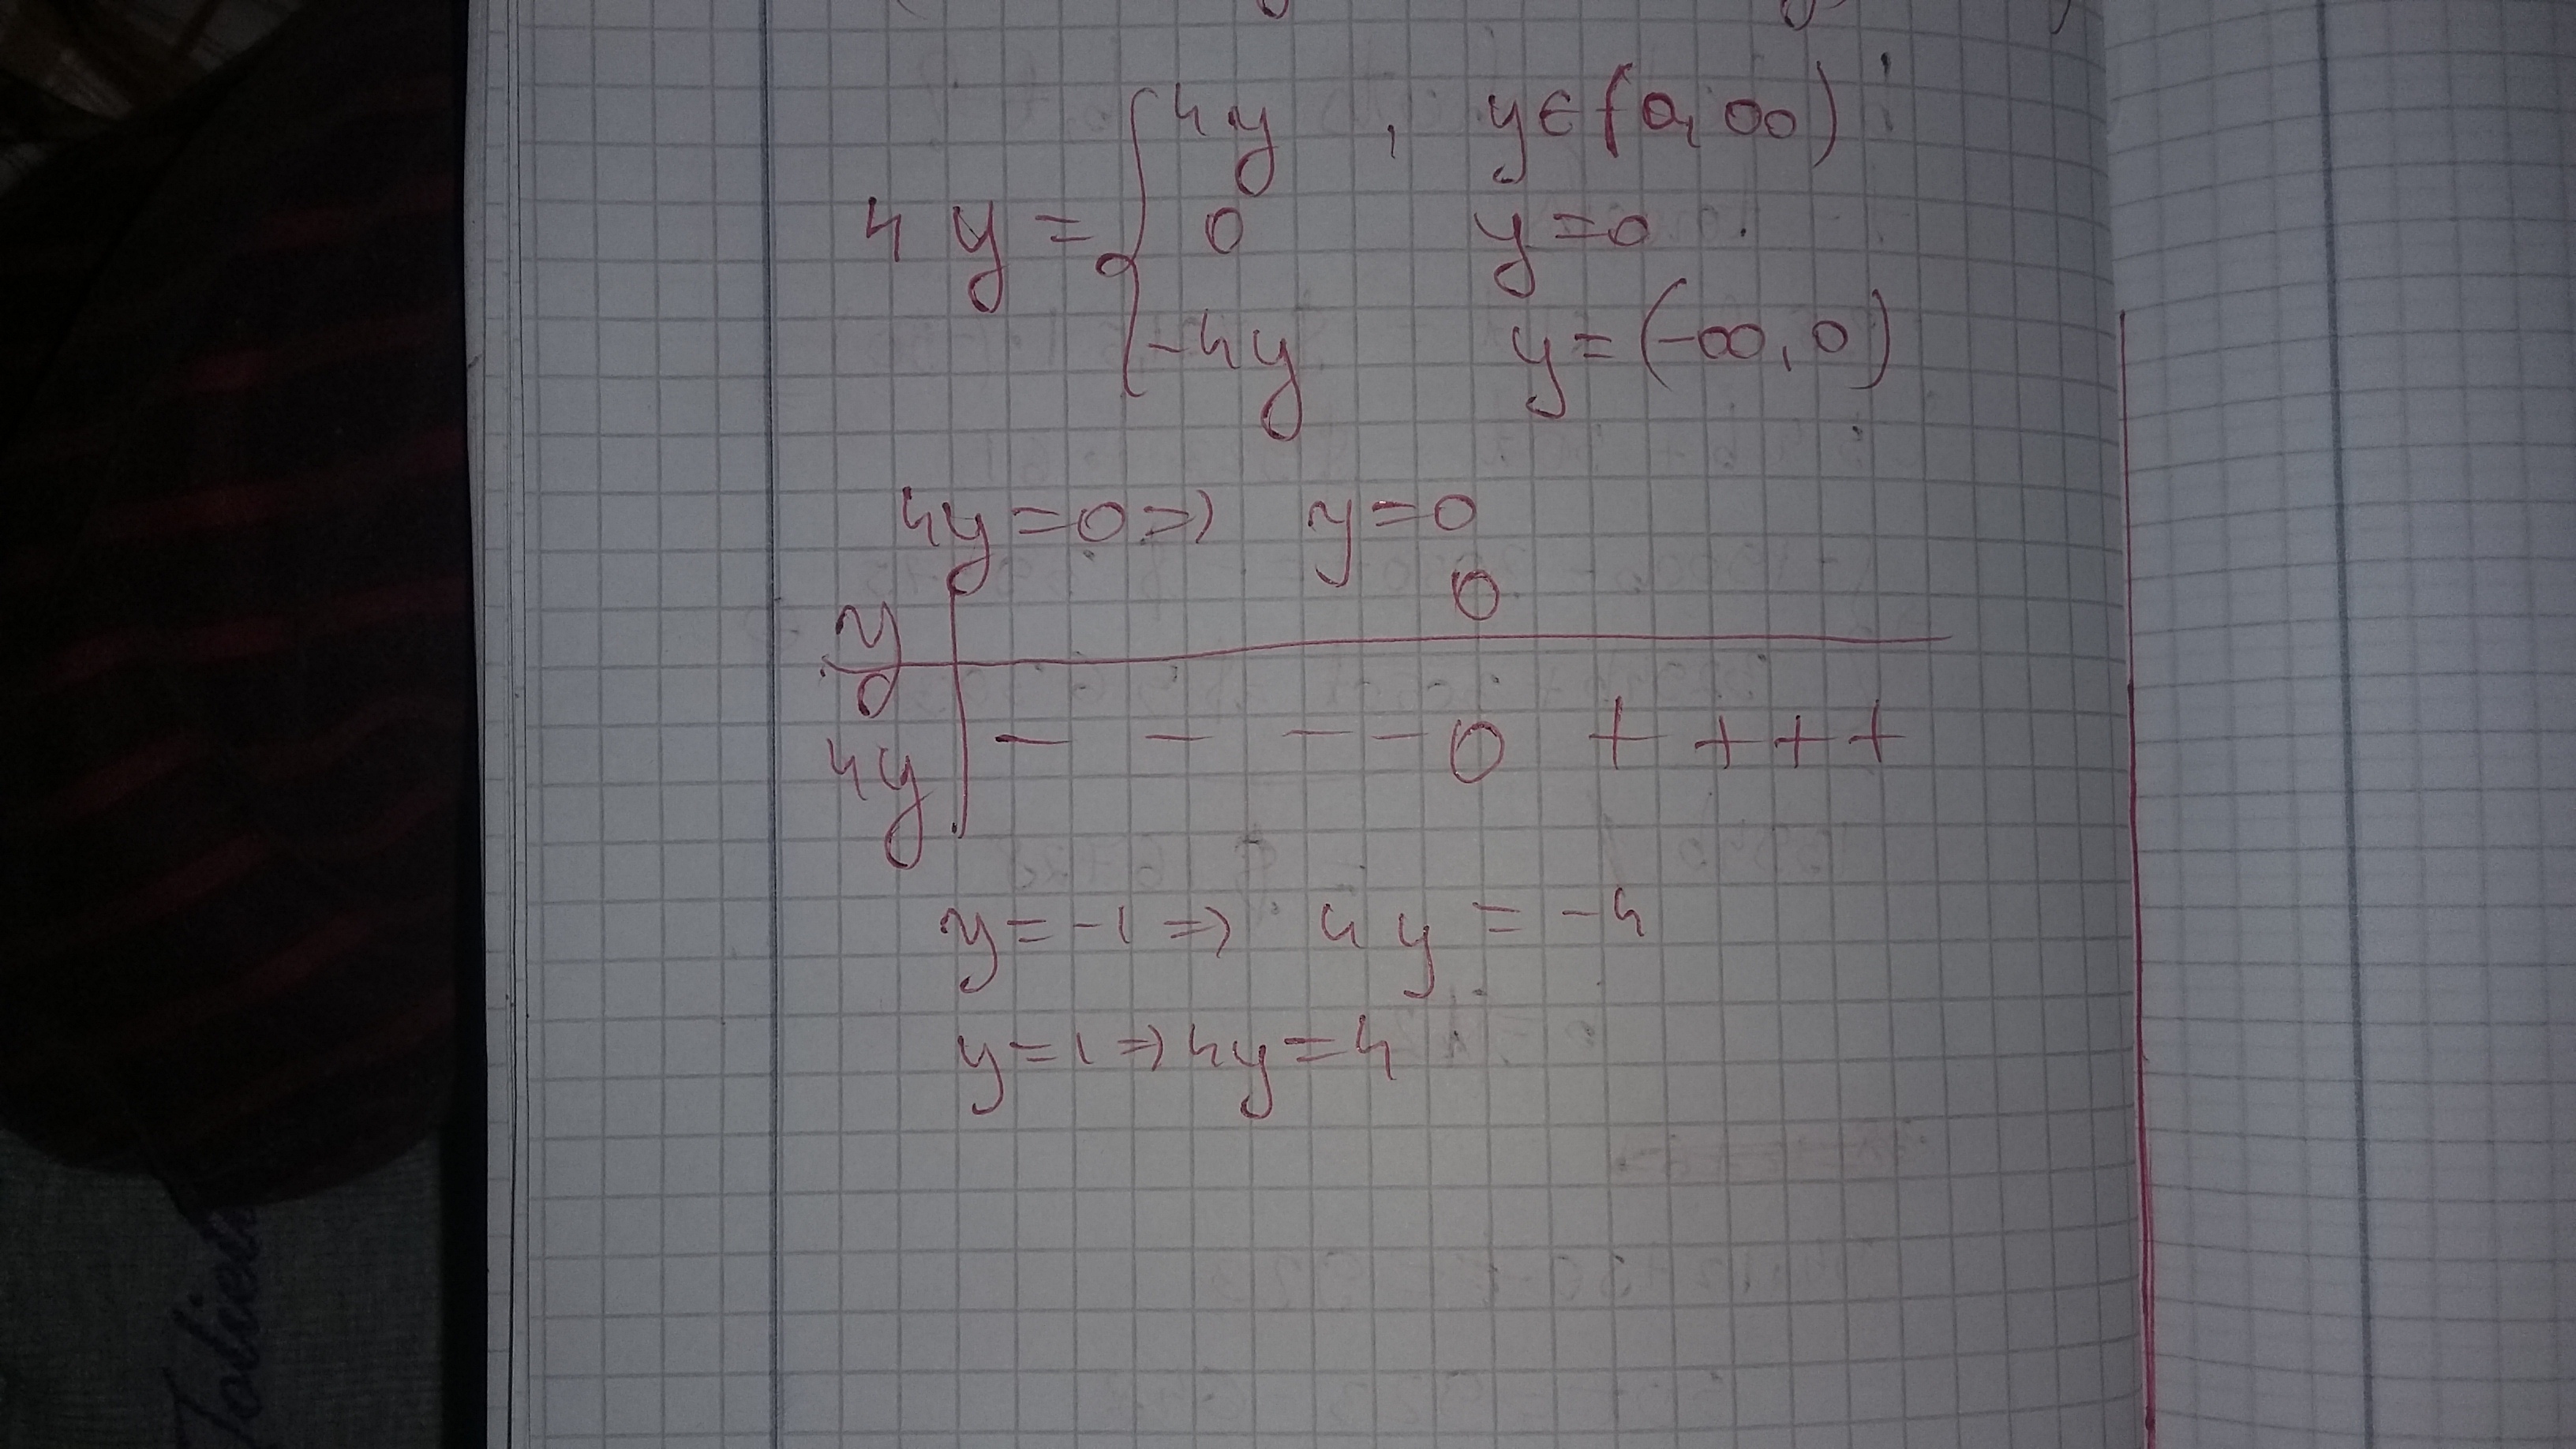 4y , y∈(0, ∞)
4 y = { 0 y=0
-4y y=(-∞, 0)
4y=0 => y=0
y 0
4y - - - - 0 + + + +
y=-1 => 4y = -4
y=1 => 4y=4